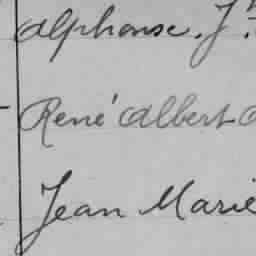 Alphonse. J.
René Albert
Jean Marie